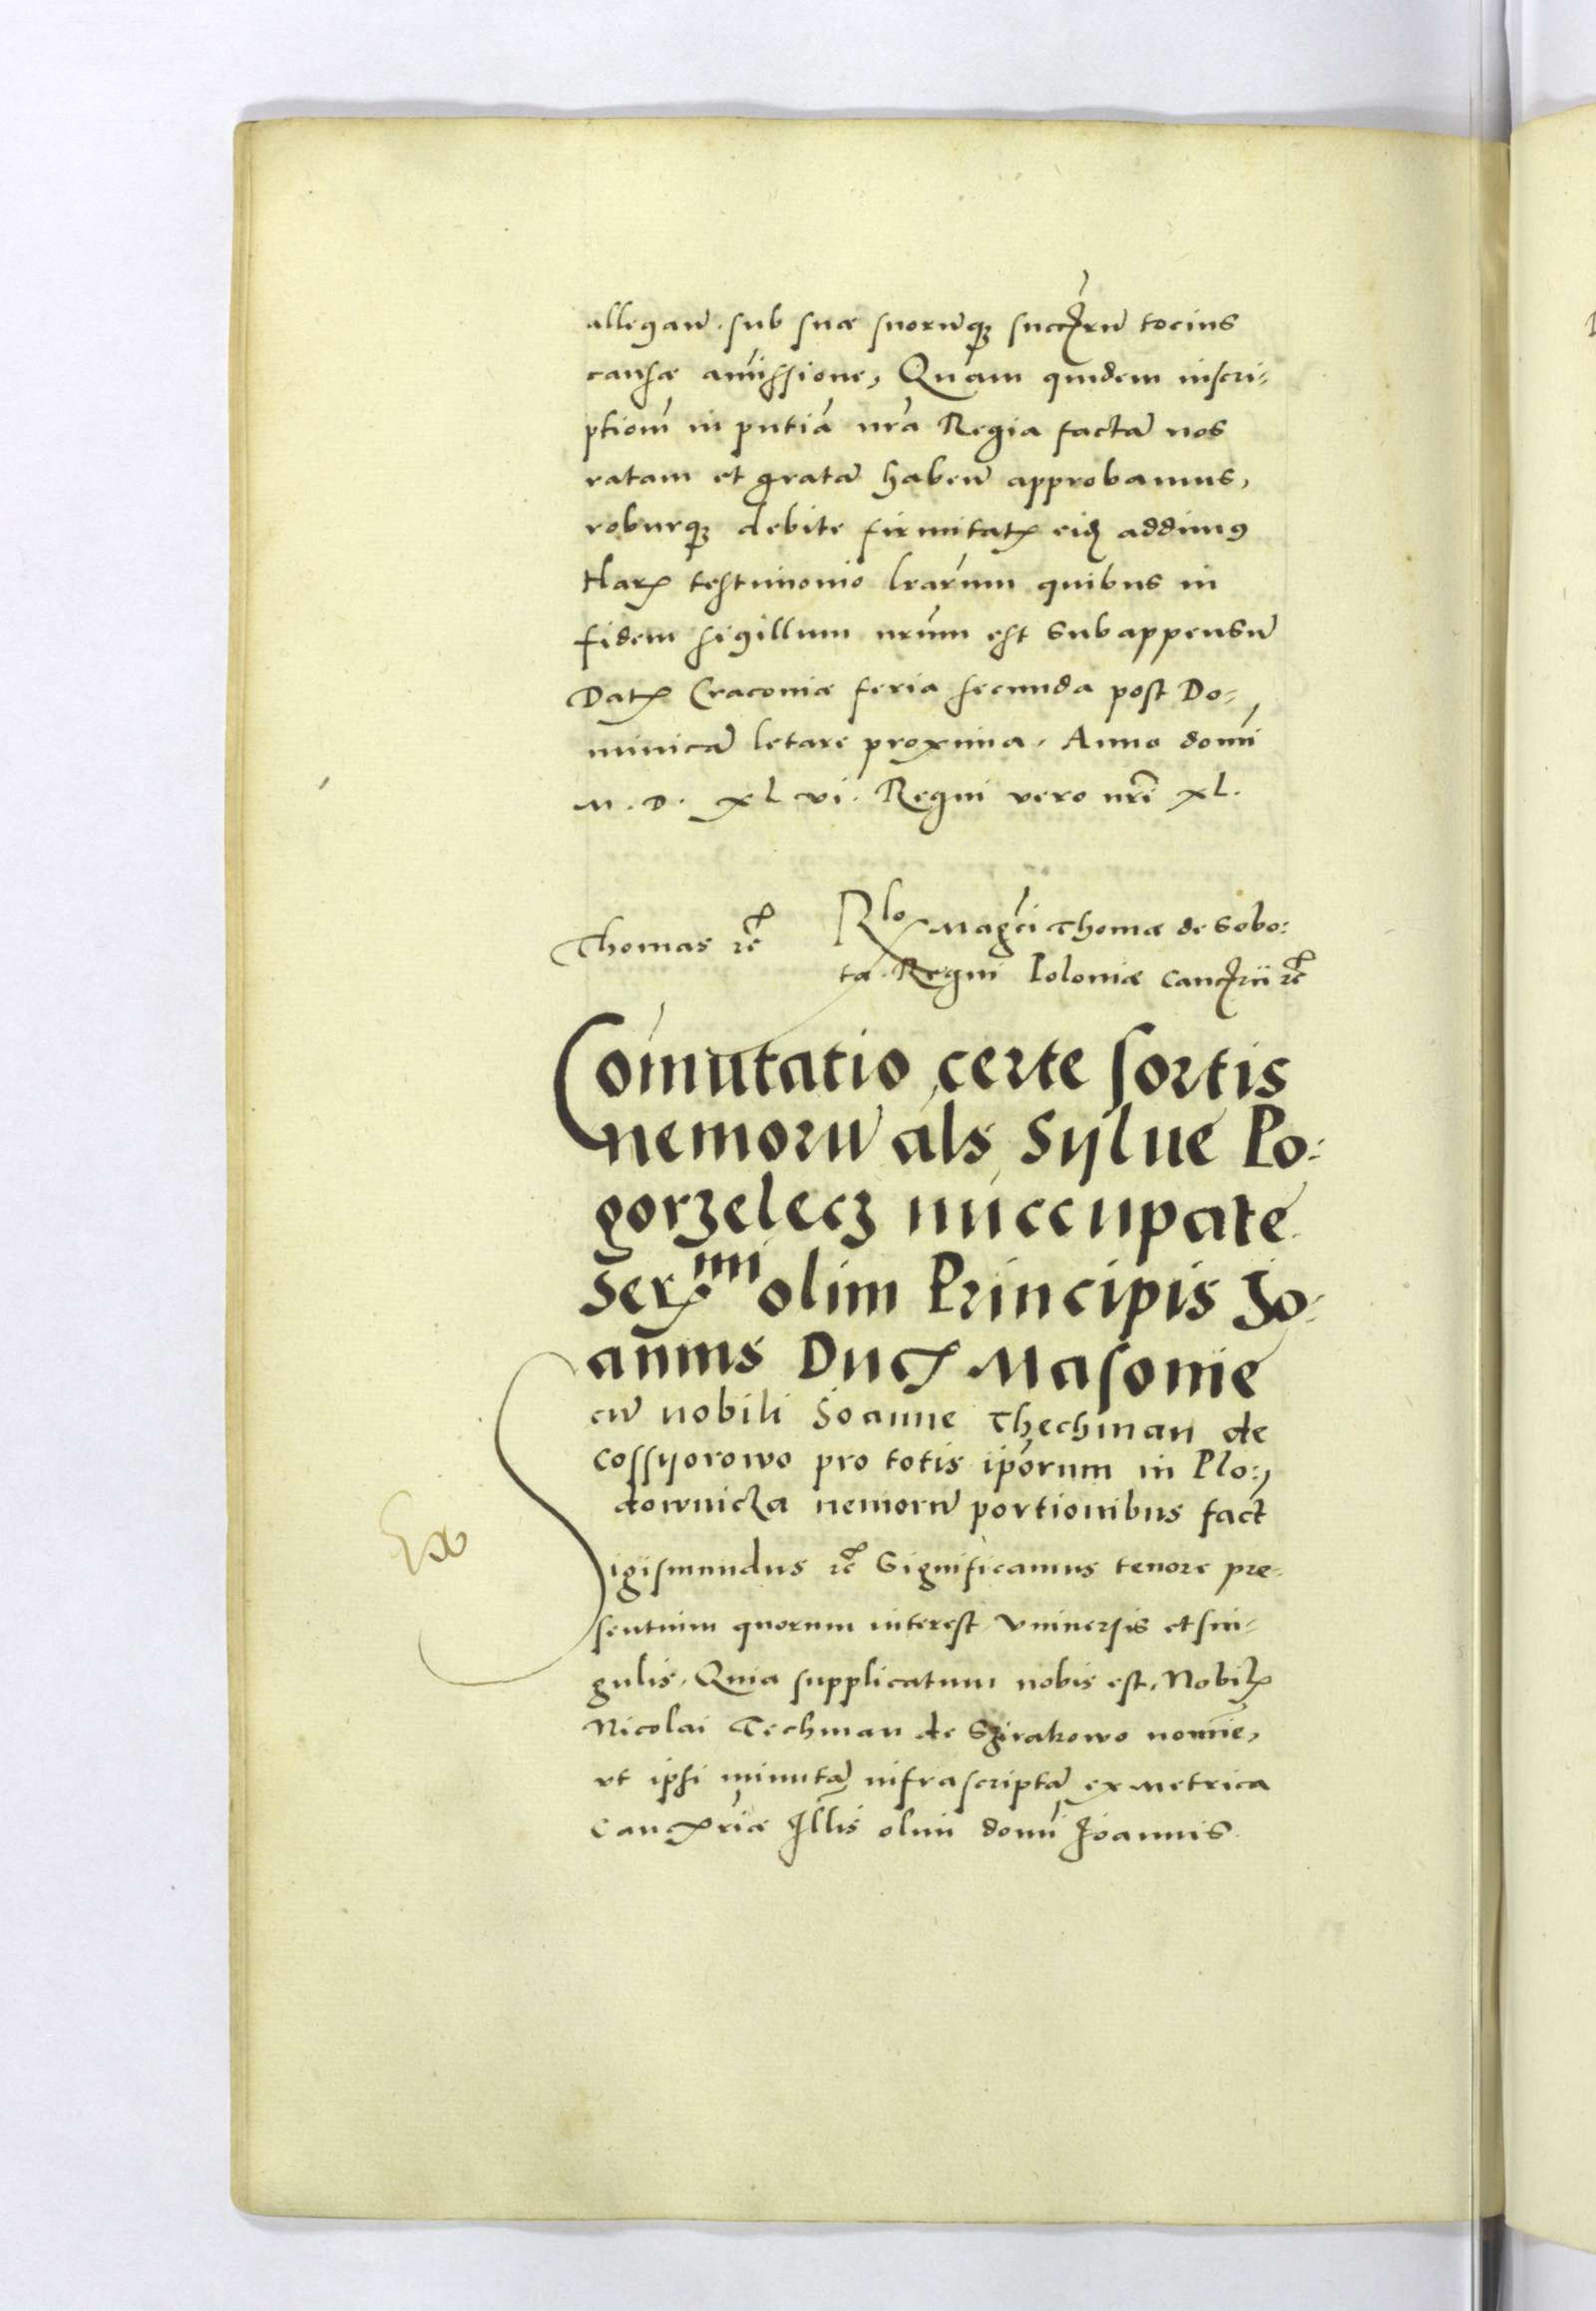 allegaῡ. sub suæ suorūq; succ̄rū tocius
causæ amissione, Quam quidem inscri-
ptionē in pñtiā nrā Regia factā nos
ratam et gratā habeñ approbamus,
roburq; debite firmitatꝭ eidē addimꝰ
Harꝝ testimonio lrārum quibus in
fidem sigillum nrūm est subappensū
Datꝭ Cracoviæ feria secunda post Do-
minicā letare proxima. Anno domī
M. D. xl vi. Regni vero nrī xl.
Thomas rc̄ Rlō Magc̄i Thomæ de Sobo:
ta Regni Poloniæ Cancrīi rc̄
Com̄utatio certe sortis
nemorū als Sylue Po:
gorzelecz nūccupate
Serᵐⁱ olim Principis Jo:
annis Ducꝭ Masovie
cū nobili Joanne Thechman de
Cossyorowo pro totis ip̄orum in Plo:
downicza nemorū portionibus fact
Ex
Sigismundus rc̄ Significamus tenore pre-
sentium quorum interest vniuersis et sin-
gulis. Quia supplicatum nobis est, Nobilꝭ
Nicolai Techman de Szirakowo nomīe,
vt ipsi minutā infrascriptā ex metrica
Cancrīæ Illis olim domī Joannis